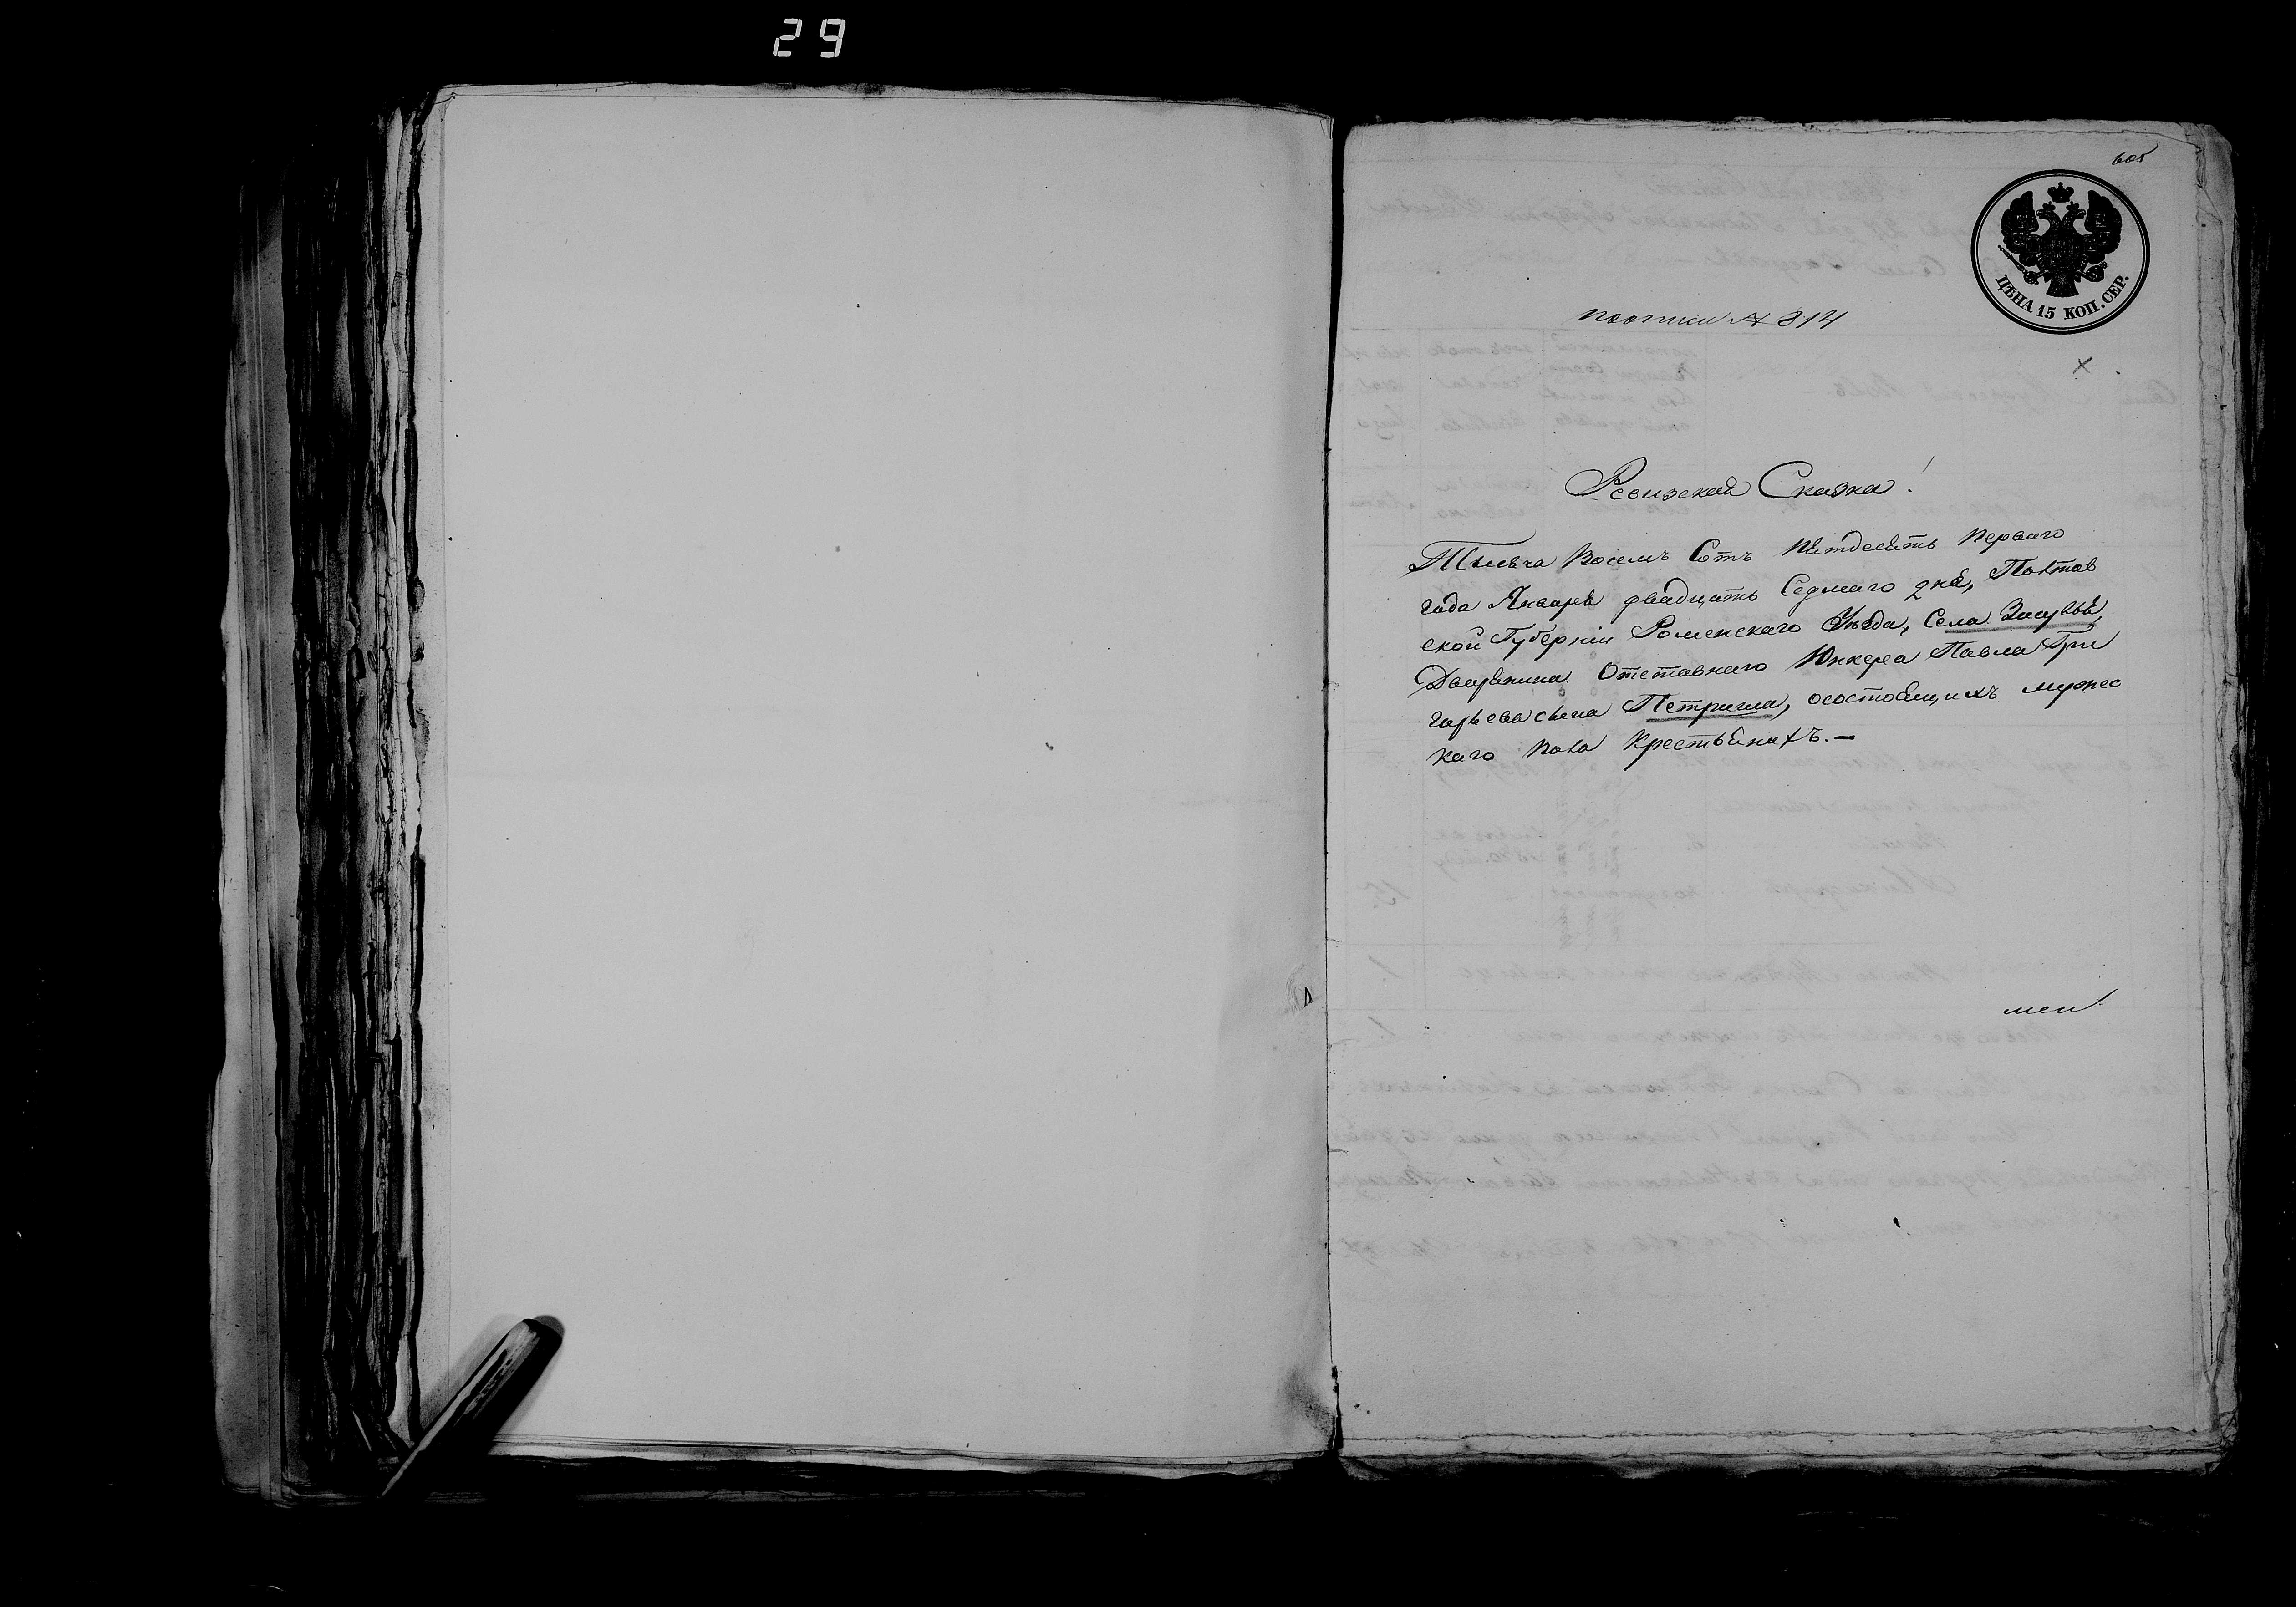 29
605
ЦѢНА 15 КОП. СЕР.
поописи № 314
Ревизская Сказка!
Тысяча Восемъ Сотъ Пятдесятъ Перваго
года Января двадцать Седмаго дня, Полтав
ской Губерніи Роменскаго Уѣзда, Села Засулья,
Дворянина Отставнаго Юнкера Павла Гри
горьева сына Петраша, осостоящихъ мужес
каго пола Крестьянахъ.—